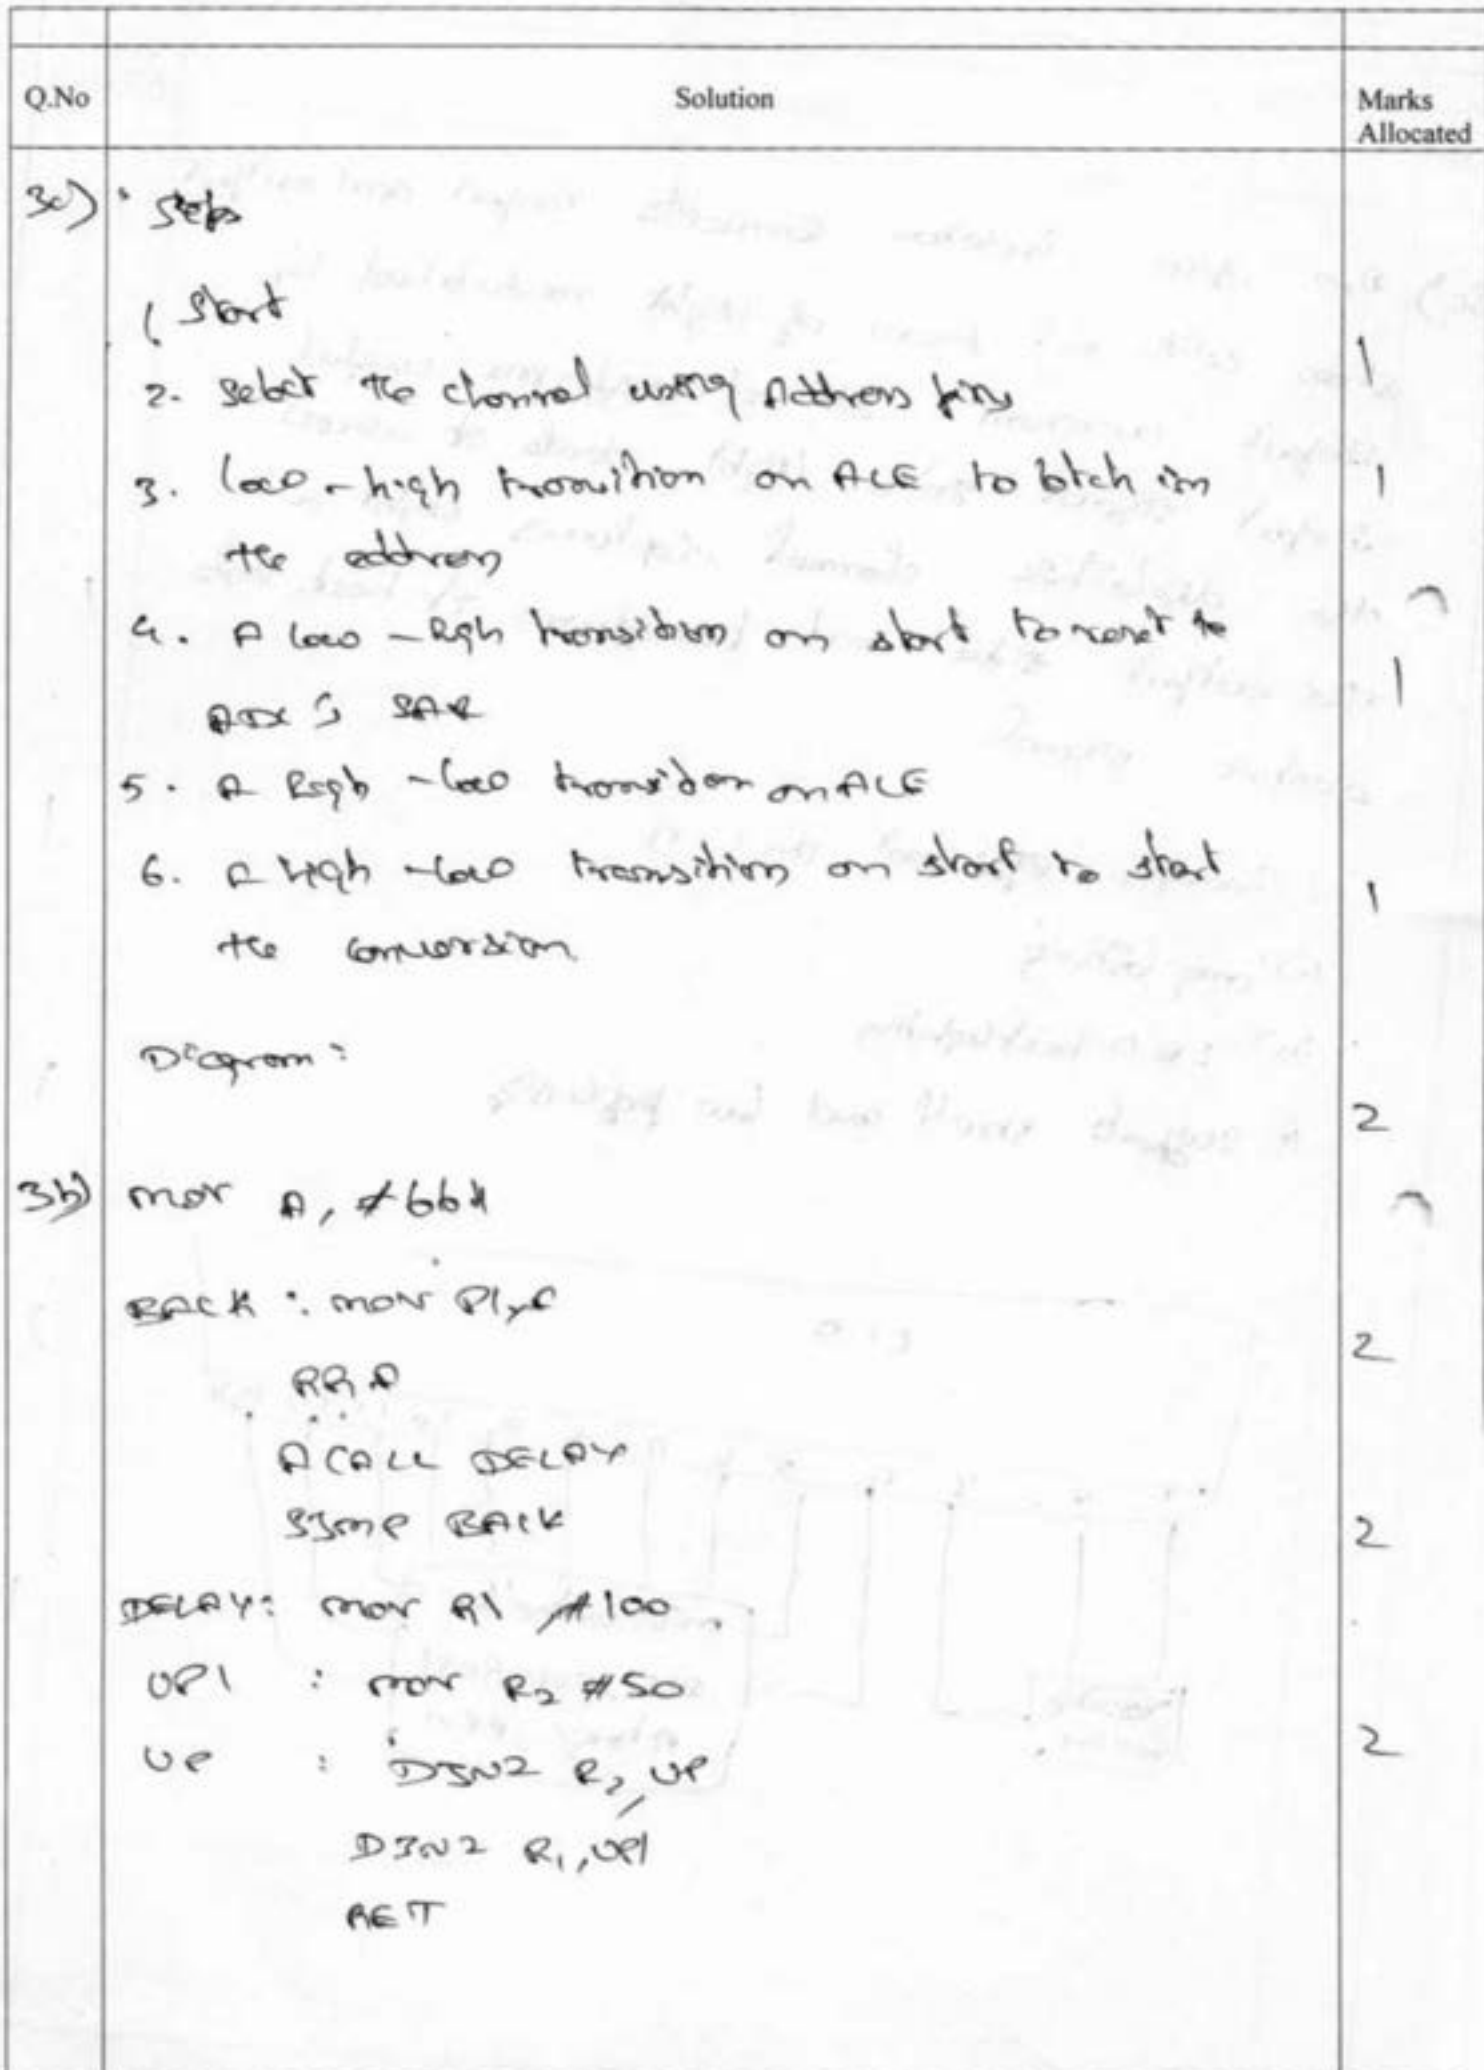 Q.No Solution Marks Allocated
3c) Steps
1 Start
2. Select the channel using Address pins 1
3. low - high transition on ALE to latch in 1
the address
4. A low - high transition on start to reset the
ADC's SAR 1
5. A high - low transition on ALE
6. A high - low transition on start to start 1
the conversion.
Diagram: 2
3b) mov A, #66H
BACK : mov P1, A 2
RR A
ACALL DELAY
SJMP BACK 2
DELAY: mov R1, #100
UP1 : mov R2 #50
UP : DJNZ R2, UP 2
DJNZ R1, UP1
RET